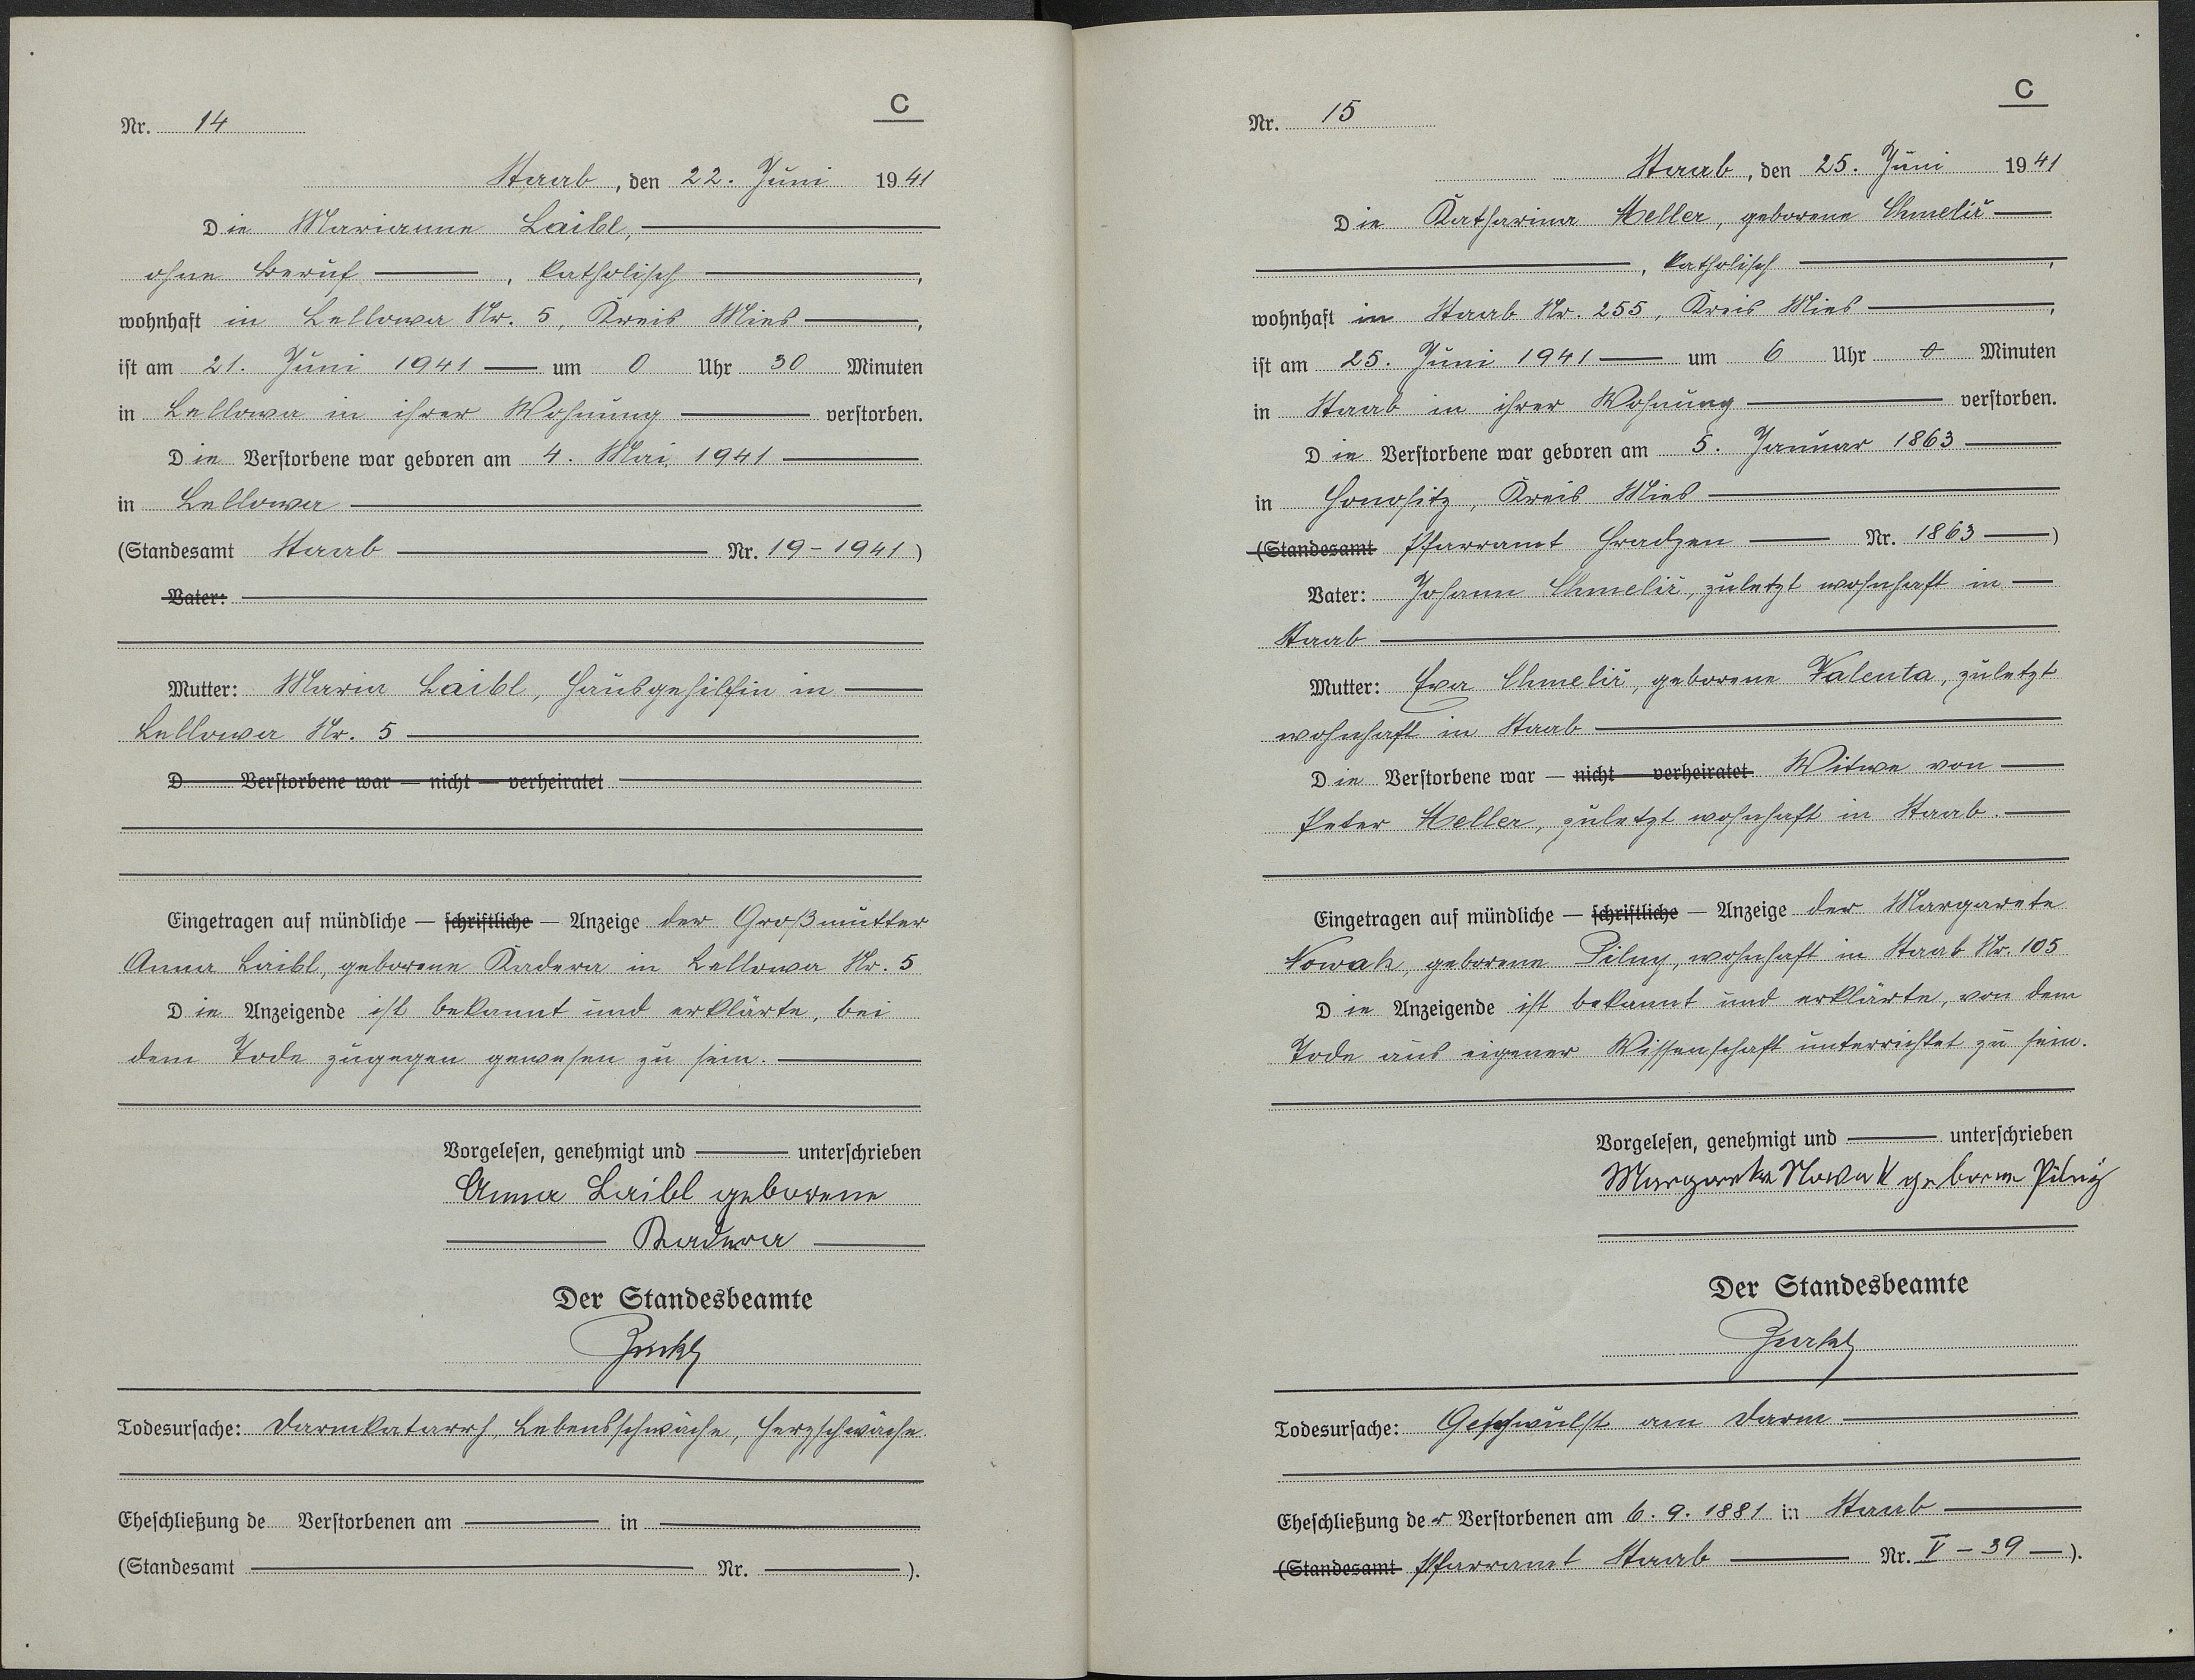 C
Nr. 14
Staab, den 22. Juni 1941
Die Marianne Laibl,
ohne Beruf, katholisch,
wohnhaft in Lellowa Nr. 5, Kreis Mies,
ist am 21. Juni 1941 um 0 Uhr 30 Minuten
in Lellowa in ihrer Wohnung verstorben.
Die Verstorbene war geboren am 4. Mai 1941
in Lellowa
(Standesamt Staab Nr. 19-1941)
Vater:
Mutter: Maria Laibl, Hausgehilfin in
Lellowa Nr. 5
D Verstorbene war — nicht — verheiratet
Eingetragen auf mündliche — schriftliche — Anzeige der Großmutter
Anna Laibl, geborene Kadera in Lellowa Nr. 5
Die Anzeigende ist bekannt und erklärte, bei
dem Tode zugegen gewesen zu sein.
Vorgelesen, genehmigt und unterschrieben
Anna Laibl geborene
Kadera
Der Standesbeamte
Todesursache: Darmkatarrh, Lebensschwäche, Herzschwäche.
Eheschließung de Verstorbenen am in
(Standesamt Nr. ).
C
Nr. 15
Staab, den 25. Juni 1941
Die Katharina Heller, geborene Chmelíř
, katholisch,
wohnhaft in Staab Nr. 255, Kreis Mies,
ist am 25. Juni 1941 um 6 Uhr 0 Minuten
in Staab in ihrer Wohnung verstorben.
Die Verstorbene war geboren am 5. Januar 1863
in Honositz, Kreis Mies
(Standesamt Pfarramt Hradzen Nr. 1863)
Vater: Johann Chmelíř, zuletzt wohnhaft in
Staab
Mutter: Eva Chmelíř, geborene Valenta, zuletzt
wohnhaft in Staab
Die Verstorbene war — nicht — verheiratet Witwe von
Peter Heller, zuletzt wohnhaft in Staab.
Eingetragen auf mündliche — schriftliche — Anzeige der Margarete
Nowak, geborene Pilny, wohnhaft in Staab Nr. 105
Die Anzeigende ist bekannt und erklärte, von dem
Tode aus eigener Wissenschaft unterrichtet zu sein.
Vorgelesen, genehmigt und unterschrieben
Margarete Nowak geborene Pilny
Der Standesbeamte
Todesursache: Geschwulst am Darm
Eheschließung der Verstorbenen am 6. 9. 1881 in Staab
(Standesamt Pfarramt Staab Nr. V - 39).